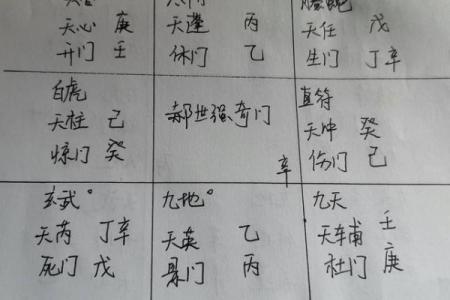 天心 庚
开门 壬
天蓬 丙
休门 乙
天任 戊
生门 丁辛
白虎
天柱 己
惊门 癸
郝世强奇门
辛
直符
天冲 癸
伤门 己
玄武°
天芮 丁辛
死门 戊
九地°
天英 乙
景门 丙
九天
天辅 壬
杜门 庚